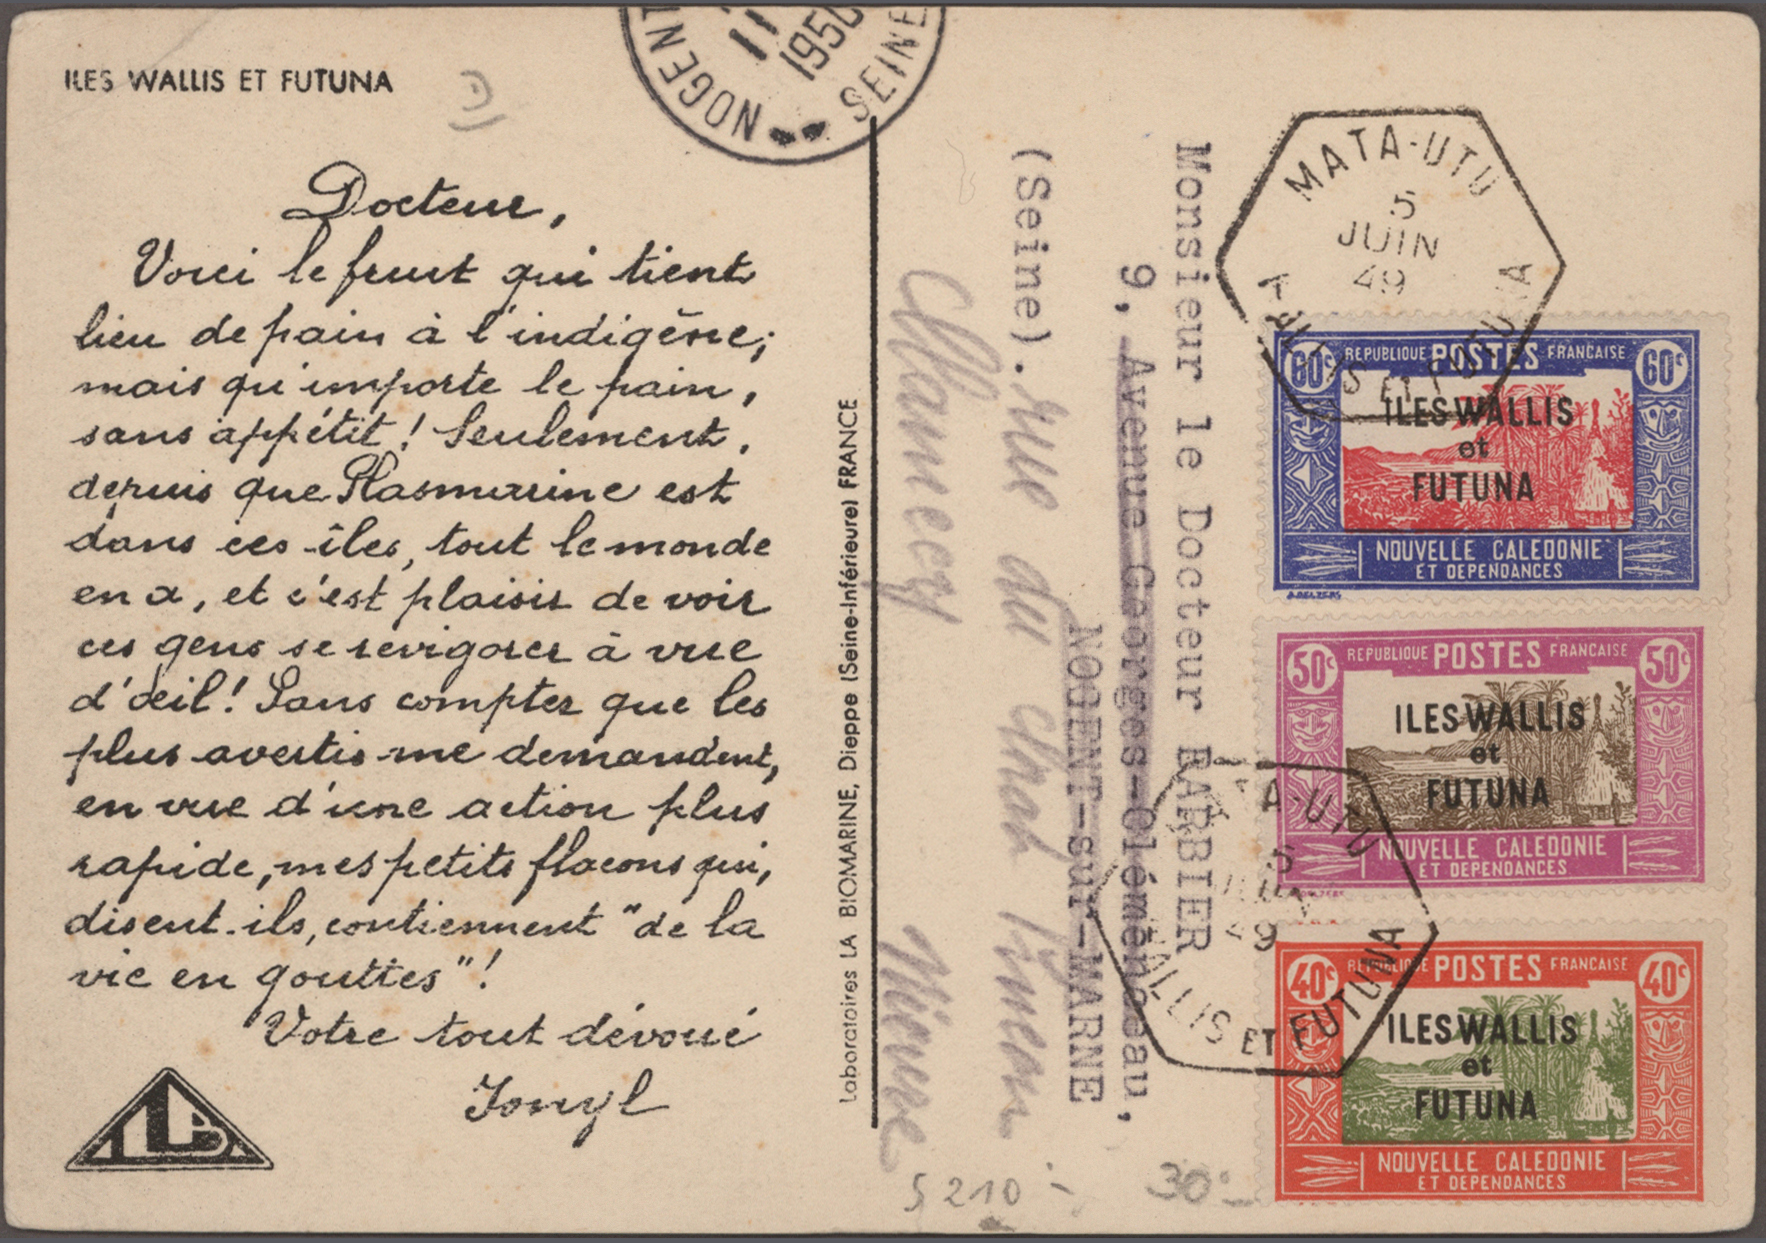 ILES WALLIS ET FUTUNA
Docteur,
Voici le fruit qui tient
lieu de pain à l'indigène;
mais qu'importe le pain,
sans appétit! Seulement,
depuis que Plasmarine est
dans ces îles, tout le monde
en a, et c'est plaisir de voir
ces gens se revigorer à vue
d'œil! Sans compter que les
plus avertis me demandent,
en vue d'une action plus
rapide, mes petits flacons qui,
disent-ils, contiennent "de la
vie en gouttes"!
Votre tout dévoué
Ionyl
LB
Laboratoires LA BIOMARINE, Dieppe (Seine-Inférieure) FRANCE
NOGENT
SEINE
11
1950
Monsieur le Docteur BARBIER
9, Avenue Georges-Clémenceau,
NOGENT-sur-MARNE
(Seine).
rue du
Clamecy
Nièvre
5210
30
MATA-UTU
5
JUIN
49
WALLIS ET FUTUNA
60c REPUBLIQUE POSTES FRANCAISE 60c
ILES WALLIS
et
FUTUNA
NOUVELLE CALEDONIE
ET DEPENDANCES
50c REPUBLIQUE POSTES FRANCAISE 50c
ILES WALLIS
et
FUTUNA
NOUVELLE CALEDONIE
ET DEPENDANCES
TA-UTU
5
JUIN
49
WALLIS ET FUTUNA
40c REPUBLIQUE POSTES FRANCAISE 40c
ILES WALLIS
et
FUTUNA
NOUVELLE CALEDONIE
ET DEPENDANCES